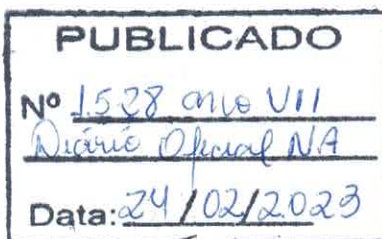 PUBLICADO
Nº 1528 ano VII
Diário Oficial NA
Data: 24/02/2023